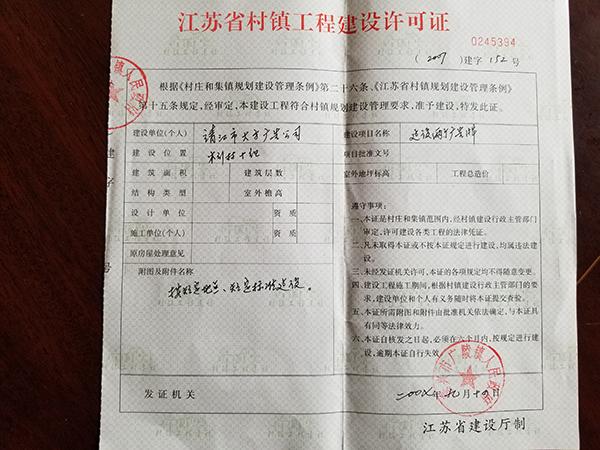 江苏省村镇工程建设许可证
0245394
(2007)建字152号
根据《村庄和集镇规划建设管理条例》第二十六条、《江苏省村镇规划建设管理条例》
第十五条规定,经审定,本建设工程符合村镇规划建设管理要求,准予建设,特发此证。
建设单位(个人) 靖江市大方广告公司 建设项目名称
建设位置 项目批准文号
建筑面积 建筑层数 室外地坪标高 工程总造价
结构类型 室外檐高
设计单位 资质
施工单位(个人) 资质
原房屋处理意见
附图及附件名称
遵守事项:
一、本证是村庄和集镇范围内,经村镇建设行政主管部门
审定,许可建设各类工程的法律凭证。
二、凡未取得本证或不按本证规定进行建设,均属违法建
设。
三、未经发证机关许可,本证的各项规定均不得随意变更。
四、建设工程施工期间,根据村镇建设行政主管部门的要
求,建设单位和个人有义务随时将本证提交查验。
五、本证所需附图和附件由批准机关依法确定,与本证具
有同等法律效力。
六、本证自核发之日起,必须在六个月内,按规定进行建
设,逾期本证自行失效
发证机关
年九月十四日
江苏省建设厅制
建
字
号
市广陵镇人民政府
镇人民政府